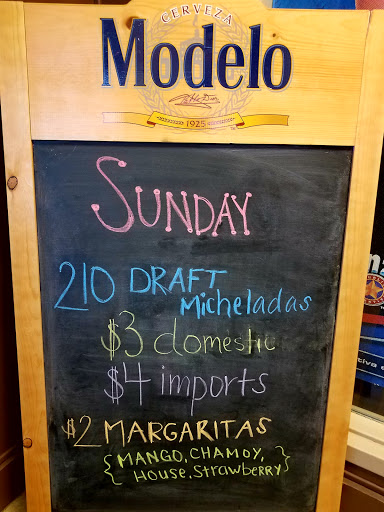 CERVEZA
Modelo
1925
SUNDAY
210 DRAFT
Micheladas
$3 domestic
$4 imports
$2 MARGARITAS
{MANGO, CHAMOY,
House, Strawberry}